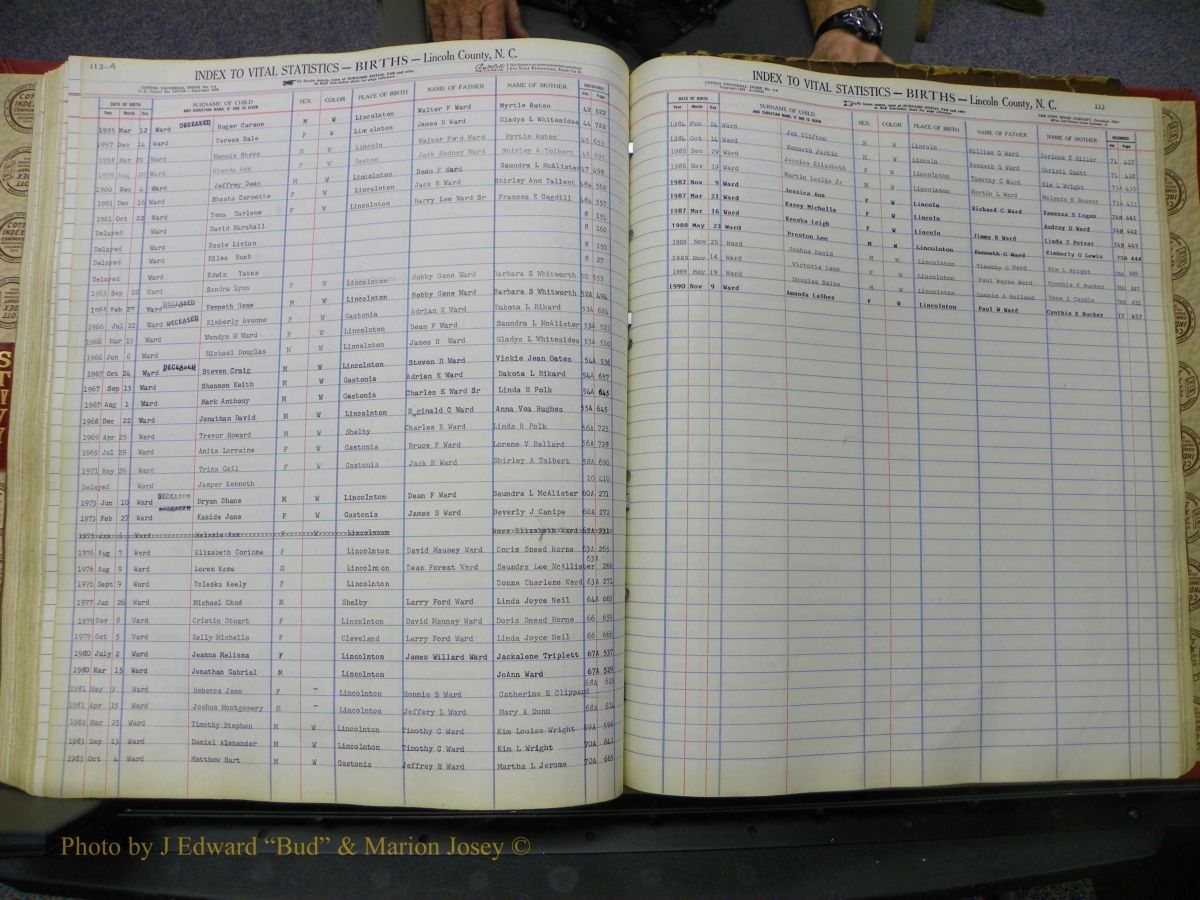 113-A
INDEX TO VITAL STATISTICS — BIRTHS — Lincoln County, N. C.
DATE OF BIRTH SURNAME OF CHILD SEX COLOR PLACE OF BIRTH NAME OF FATHER NAME OF MOTHER RECORDED
AND CHRISTIAN NAME, IF ONE IS GIVEN
Year Month Day Vol. Page
1955 Mar 12 Ward DECEASED Roger Carson M W Lincolnton Walter F Ward Myrtle Auton 42 522
1957 Dec 14 Ward Teresa Dale F W Lincoln James H Ward Gladys L Whitesides 44 722
1958 Mar 29 Ward Ronnie Steve Lincolnton Walter Ford Ward Myrtle Auton 45 653
Ward Rhonda Ann Gaston Jack Rodney Ward Shirley A Talbert 46 695
1960 Dec 4 Ward Jeffrey Dean M W Lincolnton Dean F Ward Saundra L McAlister 47 498
1961 Dec 16 Ward Shasta Cornette F W Lincolnton Jack R Ward Shirley Ann Tallent 48A 562
1961 Oct 22 Ward Tena Darlene F W Lincolnton Harry Lee Ward Sr Frances E Cogdill 48A 557
Delayed Ward David Marshall 8 151
Delayed Ward Essie Livian 8 160
Delayed Ward Miles Rush 8 150
Delayed Ward Edwin Yates 8 27
1963 Sep 22 Ward Sandra Lynn F W Lincolnton Bobby Gene Ward Barbara S Whitworth 50 553
Feb 27 Ward DECEASED Kenneth Gene M W Lincolnton Bobby Gene Ward Barbara S Whitworth 52A 494
1966 Jul 22 Ward DECEASED Kimberly Avonne F W Gastonia Adrian K Ward Dakota L Rikard 53A 624
1966 Mar 15 Ward Wendyn M Ward F W Lincolnton Dean F Ward Saundra L McAlister 53A 521
1966 Jun 6 Ward Michael Douglas M W Lincolnton James H Ward Gladys L Whitesides 53A 510
1967 Oct 24 Ward DECEASED Steven Craig M W Lincolnton Steven D Ward Vickie Jean Oates 54A 536
1967 Sep 15 Ward Shannon Keith M W Gastonia Adrian K Ward Dakota L Rikard 54A 657
1967 Aug 1 Ward Mark Anthony M W Gastonia Charles E Ward Sr Linda R Polk 54A 645
1968 Dec 22 Ward Jonathan David M W Lincolnton Reginald C Ward Anna Vea Hughes 55A 645
1969 Apr 25 Ward Trevor Howard M W Shelby Charles E Ward Linda R Polk 56A 725
1969 Jul 29 Ward Anita Lorraine F W Gastonia Bruce F Ward Lorene V Ballard 56A 728
1971 May 29 Ward Trina Gail F W Gastonia Jack R Ward Shirley A Talbert 58A 690
Delayed Ward Jasper Kenneth 10 410
1973 Jun 10 Ward DECEASED Bryan Shane M W Lincolnton Dean F Ward Saundra L McAlister 60A 271
1973 Feb 27 Ward DECEASED Kasida Jane F W Gastonia James S Ward Beverly J Canipe 60A 272
1976 Aug 7 Ward Elizabeth Corinne F Lincolnton David Mauney Ward Doris Sneed Horne 63A 265
1976 Aug 9 Ward Loren Kame Lincolnton Dean Forest Ward Saundra Lee McAllister 63A 266
1976 Sept 9 Ward Valeska Keely F Lincolnton Donna Charlene Ward 63A 272
1977 Jan 26 Ward Michael Chad M Shelby Larry Ford Ward Linda Joyce Neil 64A 663
1979 Nov 8 Ward Cristin Stuart F Lincolnton David Mauney Ward Doris Sneed Horne 66 658
1979 Oct 5 Ward Kelly Michelle F Cleveland Larry Ford Ward Linda Joyce Neil 66 666
1980 July 2 Ward Jeanna Melissa F Lincolnton James Willard Ward Jackalene Triplett 67A 537
1980 Mar 15 Ward Jonathan Gabriel M Lincolnton JoAnn Ward 67A 529
1981 May 9 Ward Rebecca Jane F - Lincolnton Ronnie S Ward Catherine E Clippard 68A 615
1981 Apr 15 Ward Joshua Montgomery M - Lincolnton Jeffery L Ward Mary A Dunn 68A 614
1982 Mar 25 Ward Timothy Stephen M W Lincolnton Timothy C Ward Kim Louise Wright 69A 596
1983 Sep 13 Ward Daniel Alexander M W Lincolnton Timothy C Ward Kim L Wright 70A 643
1983 Oct 4 Ward Matthew Hart M W Gastonia Jeffrey H Ward Martha L Jerome 70A 665
INDEX TO VITAL STATISTICS — BIRTHS — Lincoln County, N. C.
113
DATE OF BIRTH SURNAME OF CHILD SEX COLOR PLACE OF BIRTH NAME OF FATHER NAME OF MOTHER RECORDED
AND CHRISTIAN NAME, IF ONE IS GIVEN
Year Month Day Vol. Page
1984 Feb 24 Ward Jen Clifton M W Lincoln William G Ward Corinne T Miller 71 427
1984 Oct 14 Ward Kenneth Justin M W Lincoln Kenneth G Ward Christi Gantt 71 428
1986 Dec 29 Ward Jessica Elizabeth F W Lincolnton Timothy G Ward Kim L Wright 73A 430
1986 Nov 19 Ward Martin Leslie Jr M W Lincolnton Martin L Ward Melynda A Beaver 73A 431
1987 Nov 9 Ward Jessica Ann F W Lincoln Richard C Ward Vanessa S Logan 74B 441
1987 Mar 23 Ward Kasey Michelle F W Lincoln Audrey D Ward 74B 442
1987 Mar 16 Ward Keesha Leigh F W Lincoln Jimmy R Ward Linda S Poteat 74B 443
1988 May 23 Ward Preston Lee M W Lincolnton Kenneth G Ward Kimberly G Lewis 75B 444
1989 Nov 25 Ward Joshua David M W Lincolnton Timothy C Ward Kim L Wright
1989 Nov 14 Ward Victoria Lane F W Lincolnton Paul Wayne Ward Cynthia K Rucker
1989 May 19 Ward Douglas M W Lincolnton Lonnie A Holland Dana L Caudle
1990 Nov 9 Ward Amanda LaShea F W Lincolnton Paul W Ward Cynthia K Rucker 77 457
Photo by J Edward “Bud” & Marion Josey ©